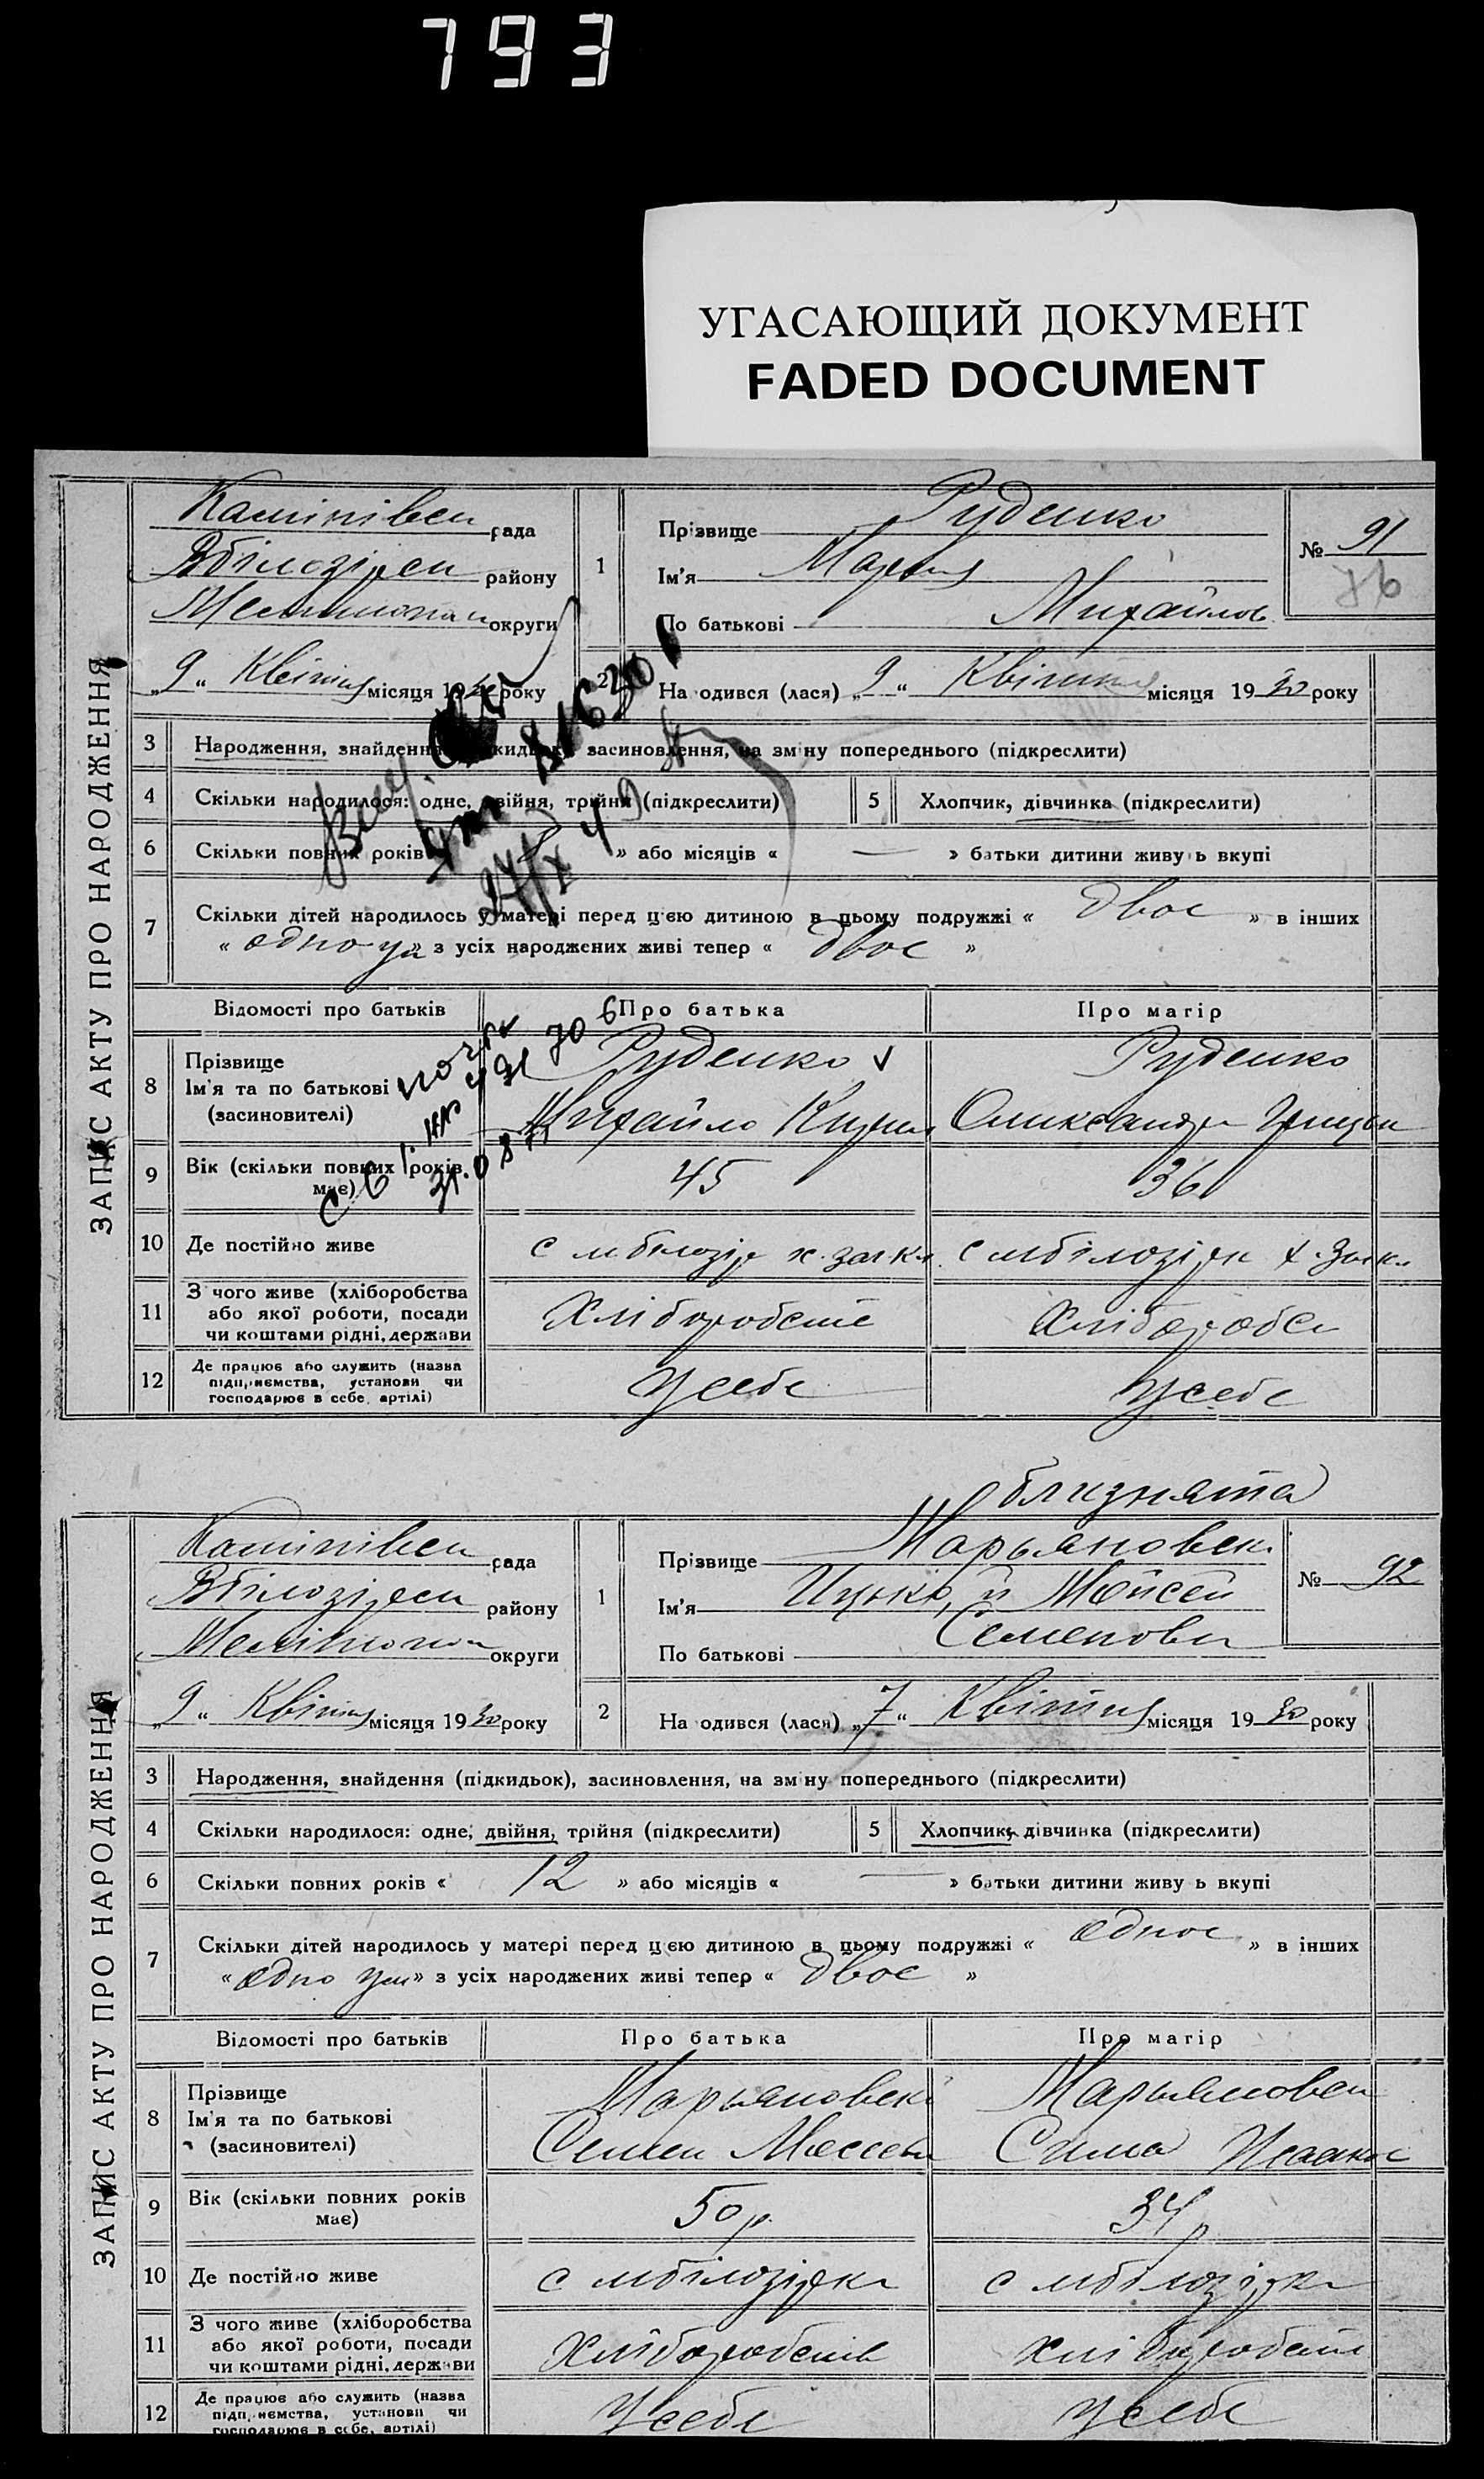 793
УГАСАЮЩИЙ ДОКУМЕНТ
FADED DOCUMENT
ЗАПИС АКТУ ПРО НАРОДЖЕННЯ
рада
району
округи
„9“ Квітня місяця 1930 року
1
Прізвище Руденко
Ім'я Мария
По батькові Михайлов
№ 91
76
2
Народився (лася) „9“ Квітня місяця 1930 року
3 Народження, знайдення (підкидьок), засиновлення, на зміну попереднього (підкреслити)
4 Скільки народилося: одне, двійня, трійня (підкреслити)
5 Хлопчик, дівчинка (підкреслити)
6 Скільки повних років « 8 » або місяців « — » батьки дитини живуть вкупі
7 Скільки дітей народилось у матері перед цією дитиною в цьому подружжі « двое » в інших
« одно » з усіх народжених живі тепер « двое »
Відомості про батьків
Про батька
Про матір
8 Прізвище
Ім'я та по батькові
(засиновителі)
Руденко
Михайло Кирил
Руденко
Олександра
9 Вік (скільки повних років має)
45
36
10 Де постійно живе
с мбілозір х.
с мбілозірк х.
11 З чого живе (хліборобства
або якої роботи, посади
чи коштами рідні, держави
Хліборобств
Хлібороб
12 Де працює або служить (назва
підприємства, установи чи
господарює в себе, артілі)
У себе
У себе
близнята
ЗАПИС АКТУ ПРО НАРОДЖЕННЯ
рада
району
округи
„9“ Квітня місяця 1930 року
1
Прізвище Марьяновськ
Ім'я Ицько, й Мойсей
По батькові Семенови
№ 92
2
Народився (лася) „7“ Квітня місяця 1930 року
3 Народження, знайдення (підкидьок), засиновлення, на зміну попереднього (підкреслити)
4 Скільки народилося: одне, двійня, трійня (підкреслити)
5 Хлопчик, дівчинка (підкреслити)
6 Скільки повних років « 12 » або місяців « — » батьки дитини живуть вкупі
7 Скільки дітей народилось у матері перед цією дитиною в цьому подружжі « одное » в інших
« одно » з усіх народжених живі тепер « двое »
Відомості про батьків
Про батька
Про матір
8 Прізвище
Ім'я та по батькові
(засиновителі)
Марьяновскі
Семен
Марьяновск
Сима
9 Вік (скільки повних років має)
50 р
34 р
10 Де постійно живе
с мбілозірка
с мбілозірка
11 З чого живе (хліборобства
або якої роботи, посади
чи коштами рідні, держави
Хліборобств
Хліборобств
12 Де працює або служить (назва
підприємства, установи чи
господарює в себе, артілі)
У себе
У себе